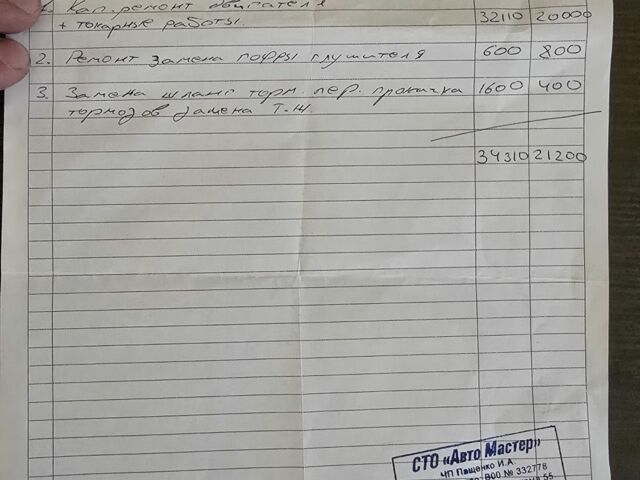 1. Кап. ремонт двигателя 32110 20000
+ токарные работы.
2. Ремонт замена гофры глушителя 600 800
3. Замена шланг торм. пер. прокачка 1600 400
тормозов замена Т-Ж.
34310 21200
СТО «Авто Мастер»
ЧП Пащенко И.А.
В00 № 332778
55